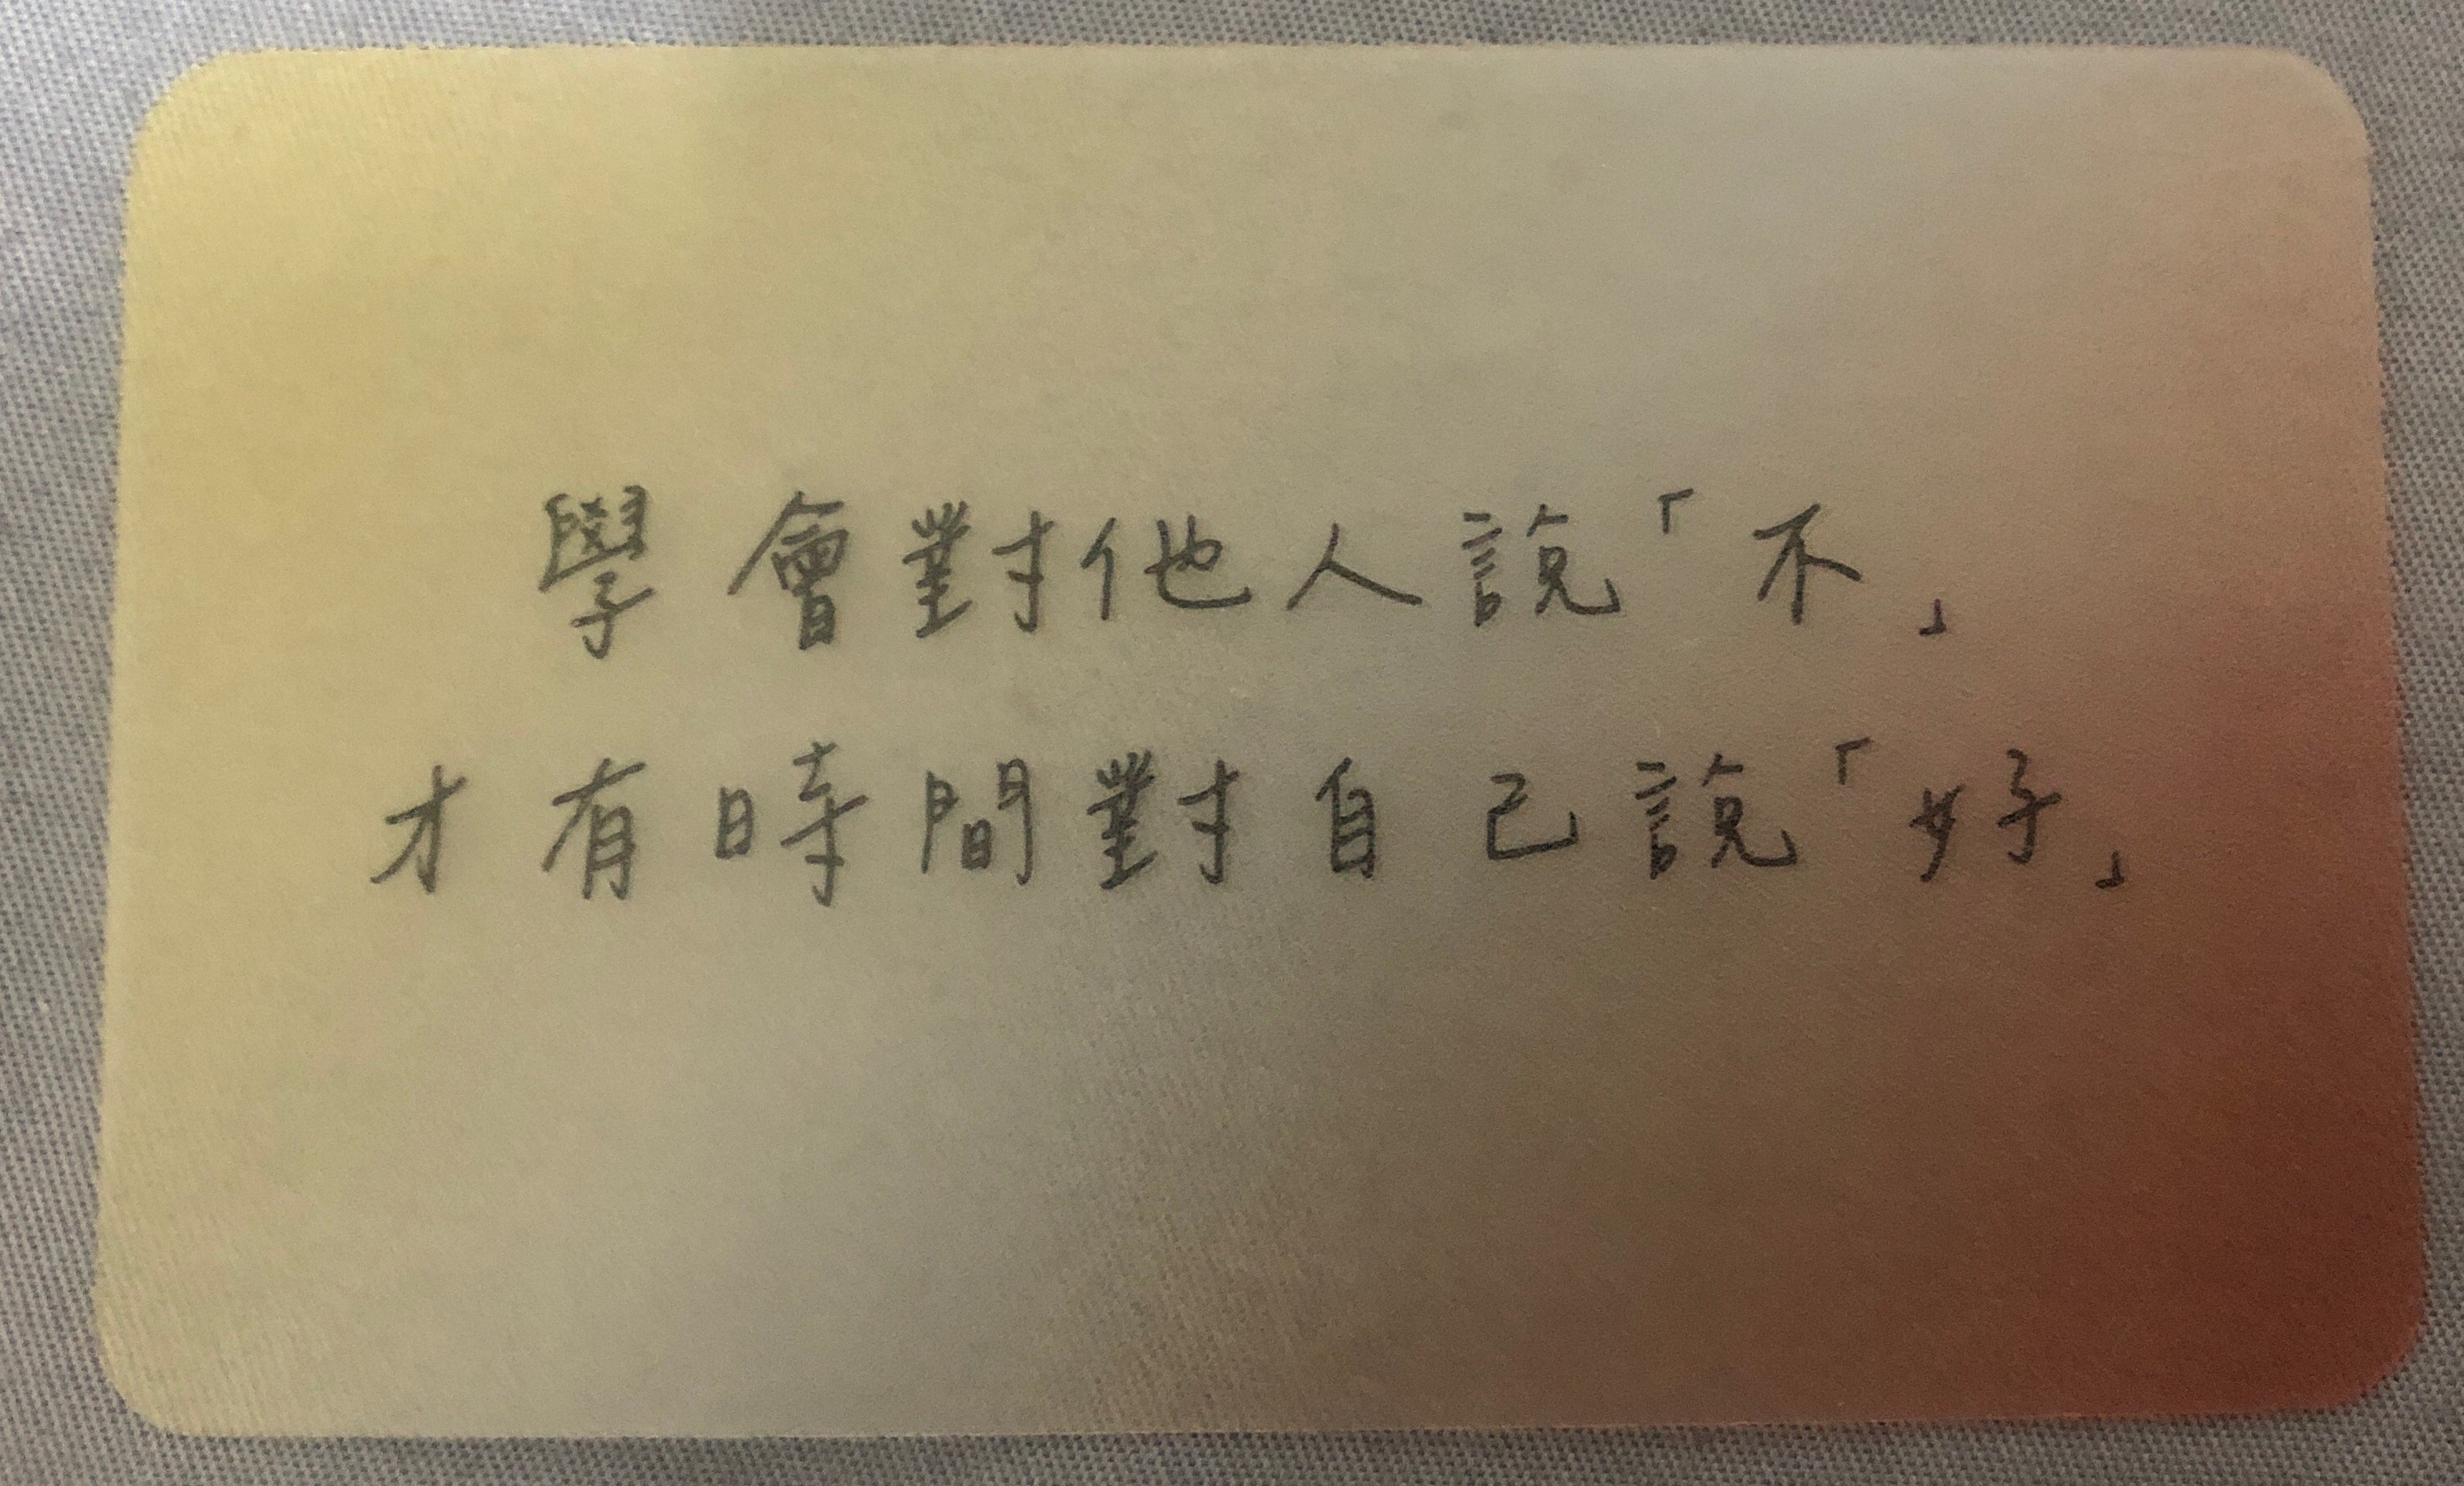 學會對他人說「不」
才有時間對自己說「好」